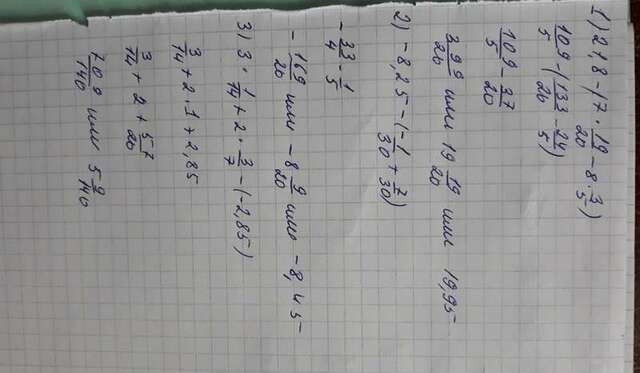 1) 21,8 - (7 · 19/20 - 8 · 3/5)
109/5 - (133/20 - 24/5)
109/5 - 37/20
399/20 или 19 19/20 или 19,95
2) -8,25 - (-1/30 + 7/30)
-33/4 - 1/5
-169/20 или -8 9/20 или -8,45
3) 3 · 1/14 + 2 · 3/7 - (-2,85)
3/14 + 2 · 1 + 2,85
3/14 + 2 + 57/20
709/140 или 5 9/140